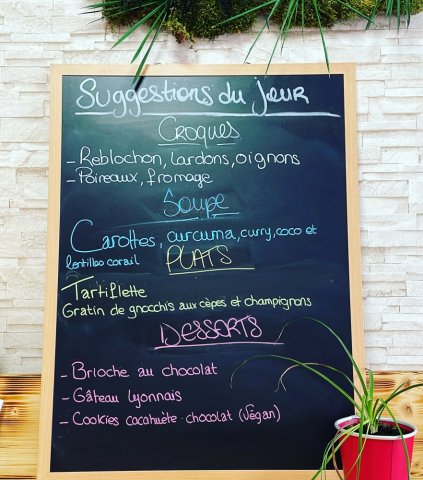 Suggestions du jour
Croques
- Reblochon, lardons, oignons
- Poireaux, fromage
Soupe
Carottes, curcuma, curry, coco et
lentilles corail
PLATS
Tartiflette
Gratin de gnocchis aux cèpes et champignons
DESSERTS
- Brioche au chocolat
- Gâteau lyonnais
- Cookies cacahuète-chocolat (Vegan)